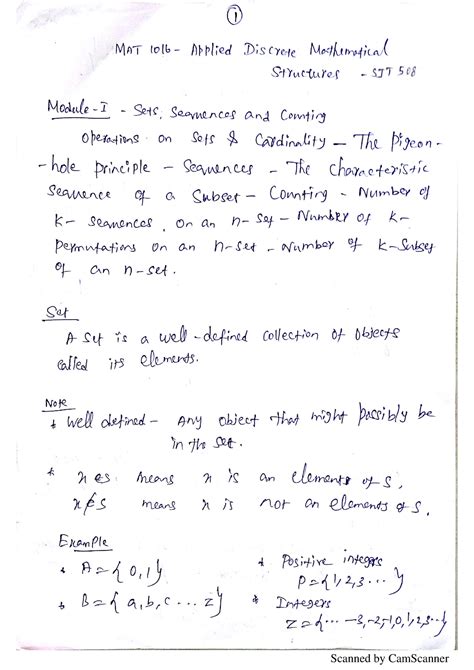 1
MAT 1016 - Applied Discrete Mathematical
Structures - SJT 508
Module - I - Sets, Sequences and Counting
Operations on Sets & Cardinality - The Pigeon-
-hole principle - Sequences - The Characteristic
Sequence of a Subset - Counting - Number of
K- sequences on an n-set - Number of K-
permutations on an n-set - Number of K-Subset
of an n-set.
Set
A Set is a well-defined collection of objects
called its elements.
Note
* Well defined - Any object that might possibly be
in the set.
* x ∈ S means x is an elements of S,
x ∉ S means x is not an elements of S.
Example
* A = {0,1}
* B = {a,b,c ... z}
* Positive integers
P = {1,2,3 ... }
* Integers
Z = {... -3,-2,-1,0,1,2,3...}
Scanned by CamScanner